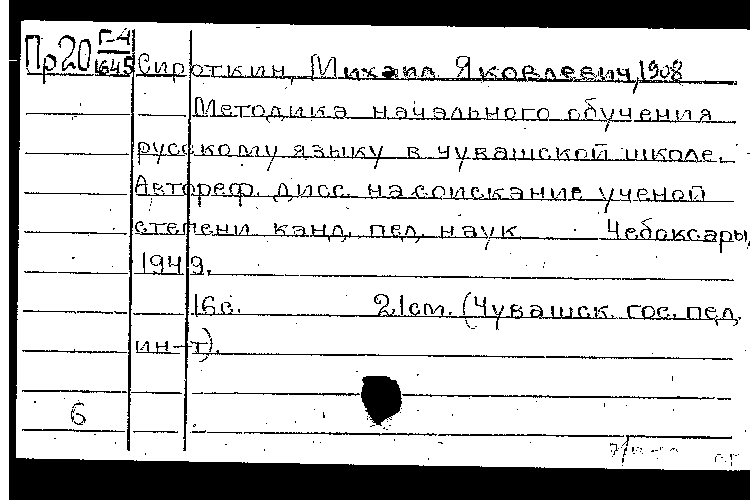 Пр20 Г-4/1645 Сироткин, Михаил Яковлевич, 1908
Методика начального обучения
русскому языку в чувашской школе.
Автореф. дисс. на соискание ученой
степени канд. пед. наук Чебоксары,
1949.
16с. 21см. (Чувашск. гос. пед.
ин-т).
6